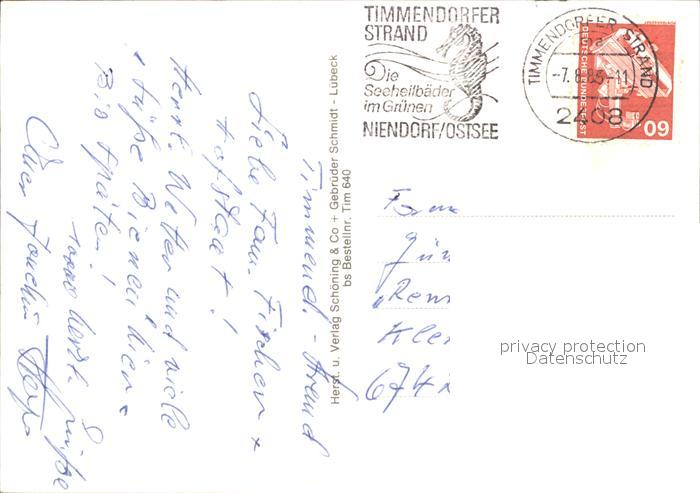 TIMMENDORFER
STRAND
Die
Seeheilbäder
im Grünen
NIENDORF/OSTSEE
TIMMENDORFER STRAND
-7.6.83-11
2408
DEUTSCHE BUNDESPOST
60
Herst. u. Verlag Schöning & Co + Gebrüder Schmidt - Lübeck
bs Bestellnr. Tim 640
Timmend. - Strand
Liebe Fam. Fischer +
Hofstaat!
Herrl. Wetter und viele
süße Bienen hier.
Bis später!
1000 herzl. Grüße
Euer Joachim
Fam
Gün
Kle
674
privacy protection
Datenschutz